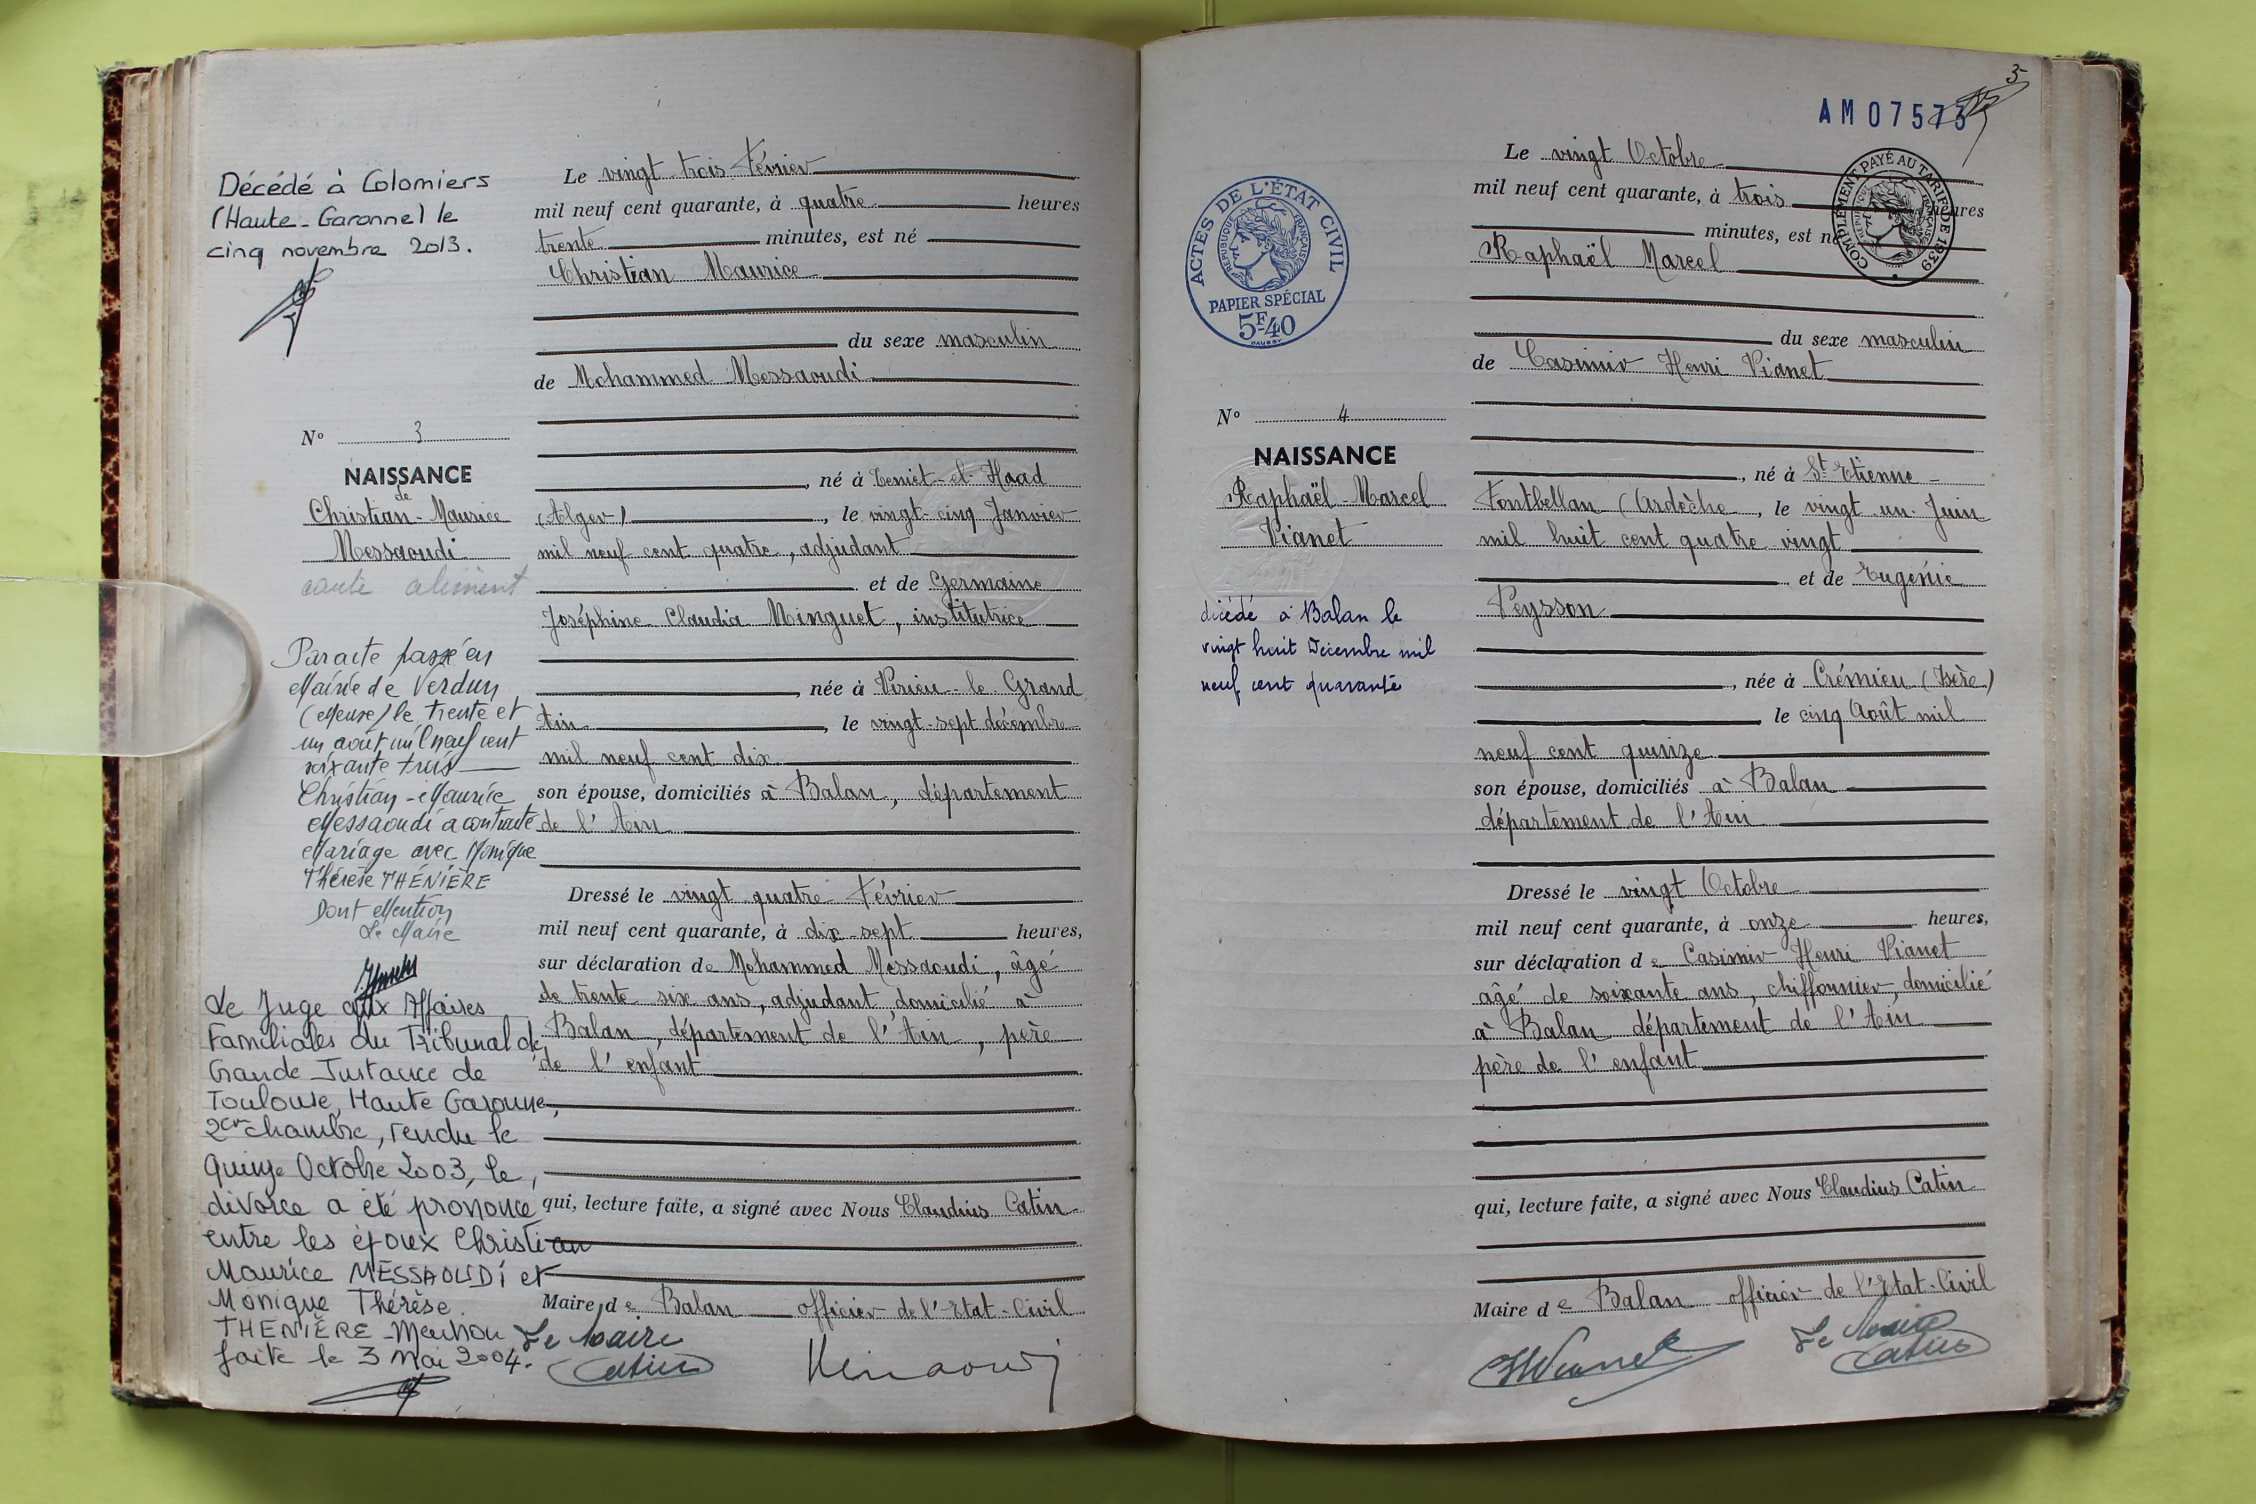 Décédé à Colomiers
(Haute-Garonne) le
cinq novembre 2013.
N° 3
NAISSANCE
de
Christian-Maurice
Messaoudi
Par acte passé en
Mairie de Verdun
(Meuse) le trente et
un août mil neuf cent
soixante trois
Christian-Maurice
Messaoudi a contracté
Mariage avec Monique
Thérèse THÉNIÈRE
Dont Mention
Le Maire
Le Juge aux Affaires
Familiales du Tribunal de
Grande Instance de
Toulouse, Haute Garonne,
chambre, rendu le
Quinze Octobre 2003, le
divorce a été prononcé
entre les époux Christian
Maurice MESSAOUDI et
Monique Thérèse
THENIÈRE - Mention
faite le 3 Mai 2004.
Le vingt-trois Février
mil neuf cent quarante, à quatre heures
trente minutes, est né
Christian Maurice
du sexe masculin
de Mohammed Messaoudi
, né à Teniet-el-Haad
(Alger) , le vingt-cinq Janvier
mil neuf cent quatre, adjudant
et de Germaine
Joséphine Claudia Minguet, institutrice
, née à Virieu-le-Grand
Ain , le vingt-sept décembre
mil neuf cent dix
son épouse, domiciliés à Balan, département
de l'Ain
Dressé le vingt quatre Février
mil neuf cent quarante, à dix-sept heures,
sur déclaration de Mohammed Messaoudi, âgé
de trente six ans, adjudant, domicilié à
Balan, département de l'Ain, père
de l'enfant
qui, lecture faite, a signé avec Nous Claudius Catin
Maire de Balan officier de l'Etat-Civil
Le Maire
Catin
3
AM 07573
ACTES DE L'ÉTAT CIVIL
RÉPUBLIQUE FRANÇAISE
PAPIER SPÉCIAL
5F40
COMPLÉMENT PAYÉ AU TARIF DE 1939
N° 4
NAISSANCE
Raphaël-Marcel
Vianet
décédé à Balan le
vingt huit Décembre mil
neuf cent quarante
Le vingt Octobre
mil neuf cent quarante, à trois heures
minutes, est né
Raphaël Marcel
du sexe masculin
de Casimir Henri Vianet
, né à St Etienne-
Fontbellan (Ardèche , le vingt un Juin
mil huit cent quatre vingt
et de Eugénie
Peysson
, née à Crémieu (Isère)
le cinq Août mil
neuf cent quinze
son épouse, domiciliés à Balan
département de l'Ain
Dressé le vingt Octobre
mil neuf cent quarante, à onze heures,
sur déclaration de Casimir Henri Vianet
âgé de soixante ans, chiffonnier, domicilié
à Balan département de l'Ain
père de l'enfant
qui, lecture faite, a signé avec Nous Claudius Catin
Maire de Balan officier de l'Etat-Civil
Le Maire
Catin